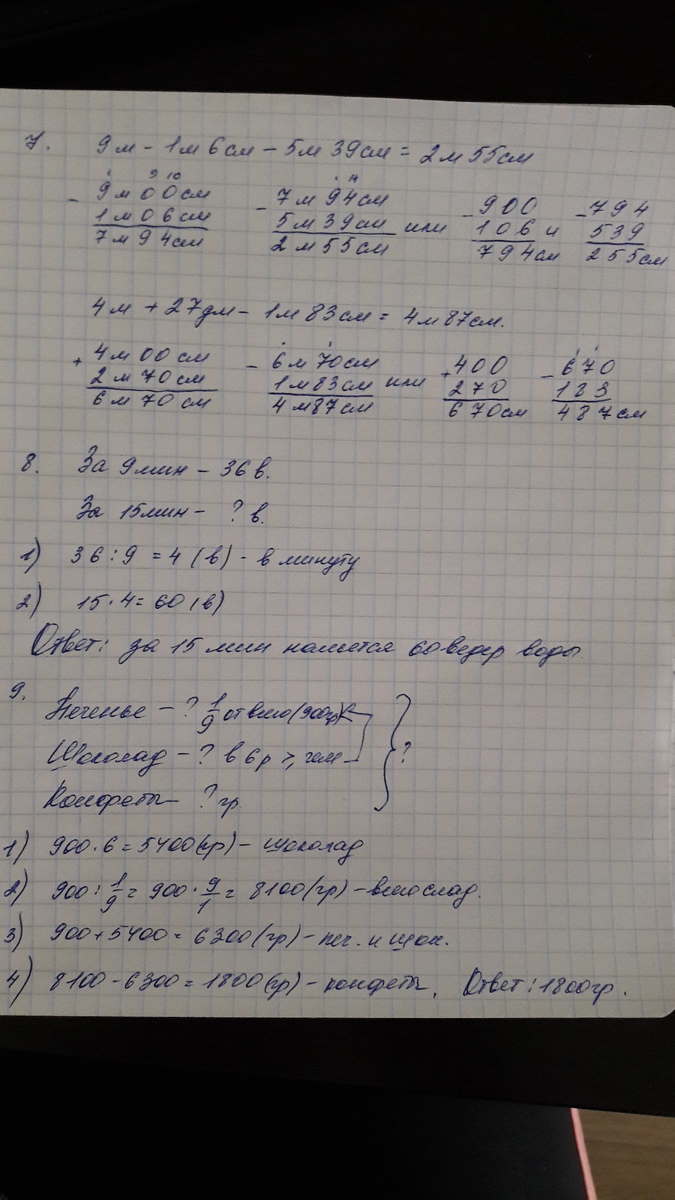 7. 9м - 1м 6см - 5м 39см = 2м 55см
9 10 14
- 9м 00см - 7м 94см - 900 - 794
1м 06см 5м 39см или 106 и 539
7м 94см 2м 55см 794см 255см
4м + 27дм - 1м 83см = 4м 87см.
+ 4м 00см - 6м 70см + 400 - 670
2м 70см 1м 83см или 270 183
6м 70см 4м 87см 670см 487см
8. За 9мин - 36 в.
За 15мин - ? в.
1) 36 : 9 = 4 (в) - в минуту
2) 15 · 4 = 60 (в)
Ответ: за 15 мин нальется 60 ведер воды
9.
Печенье - ? 1/9 от всего (900гр)
Шоколад - ? в 6 р >, чем
Конфеты - ? гр. ?
1) 900 · 6 = 5400 (гр) - шоколад
2) 900 : 1/9 = 900 · 9/1 = 8100 (гр) - всего слад.
3) 900 + 5400 = 6300 (гр) - печ. и шок.
4) 8100 - 6300 = 1800 (гр) - конфеты. Ответ: 1800гр.